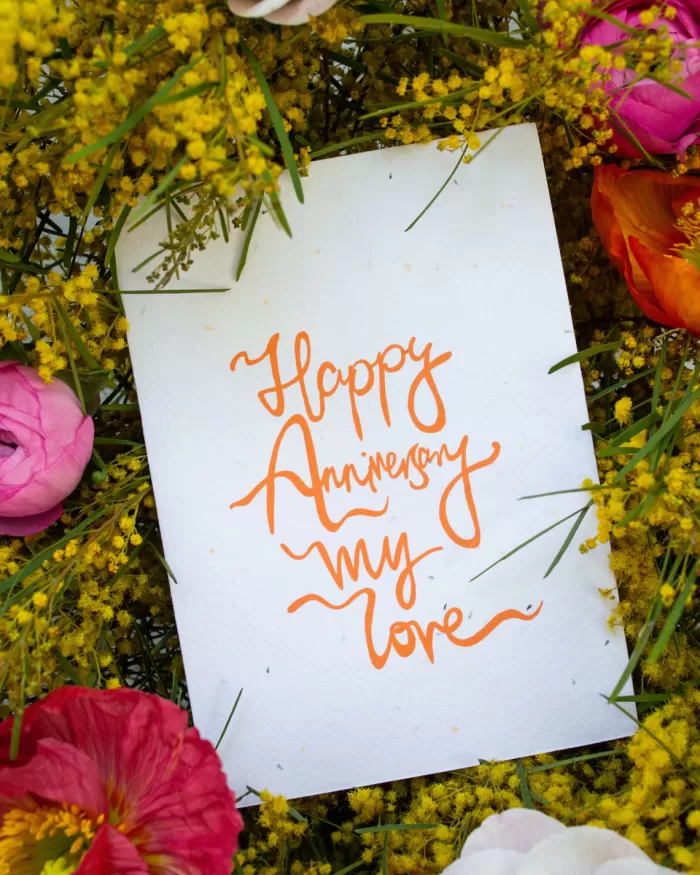 Happy
Anniversary
my
love